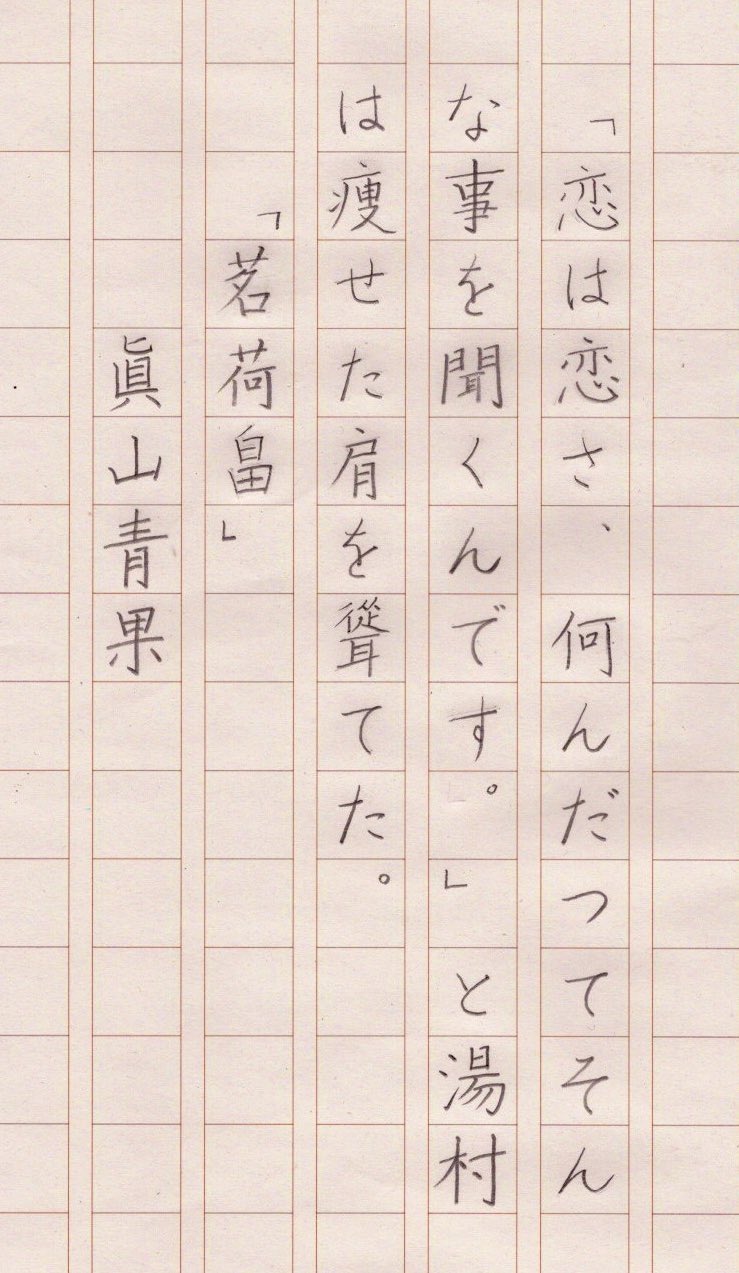 「恋は恋さ、何んだつてそん
な事を聞くんです。」と湯村
は痩せた肩を聳てた。
「茗荷畠」
眞山青果